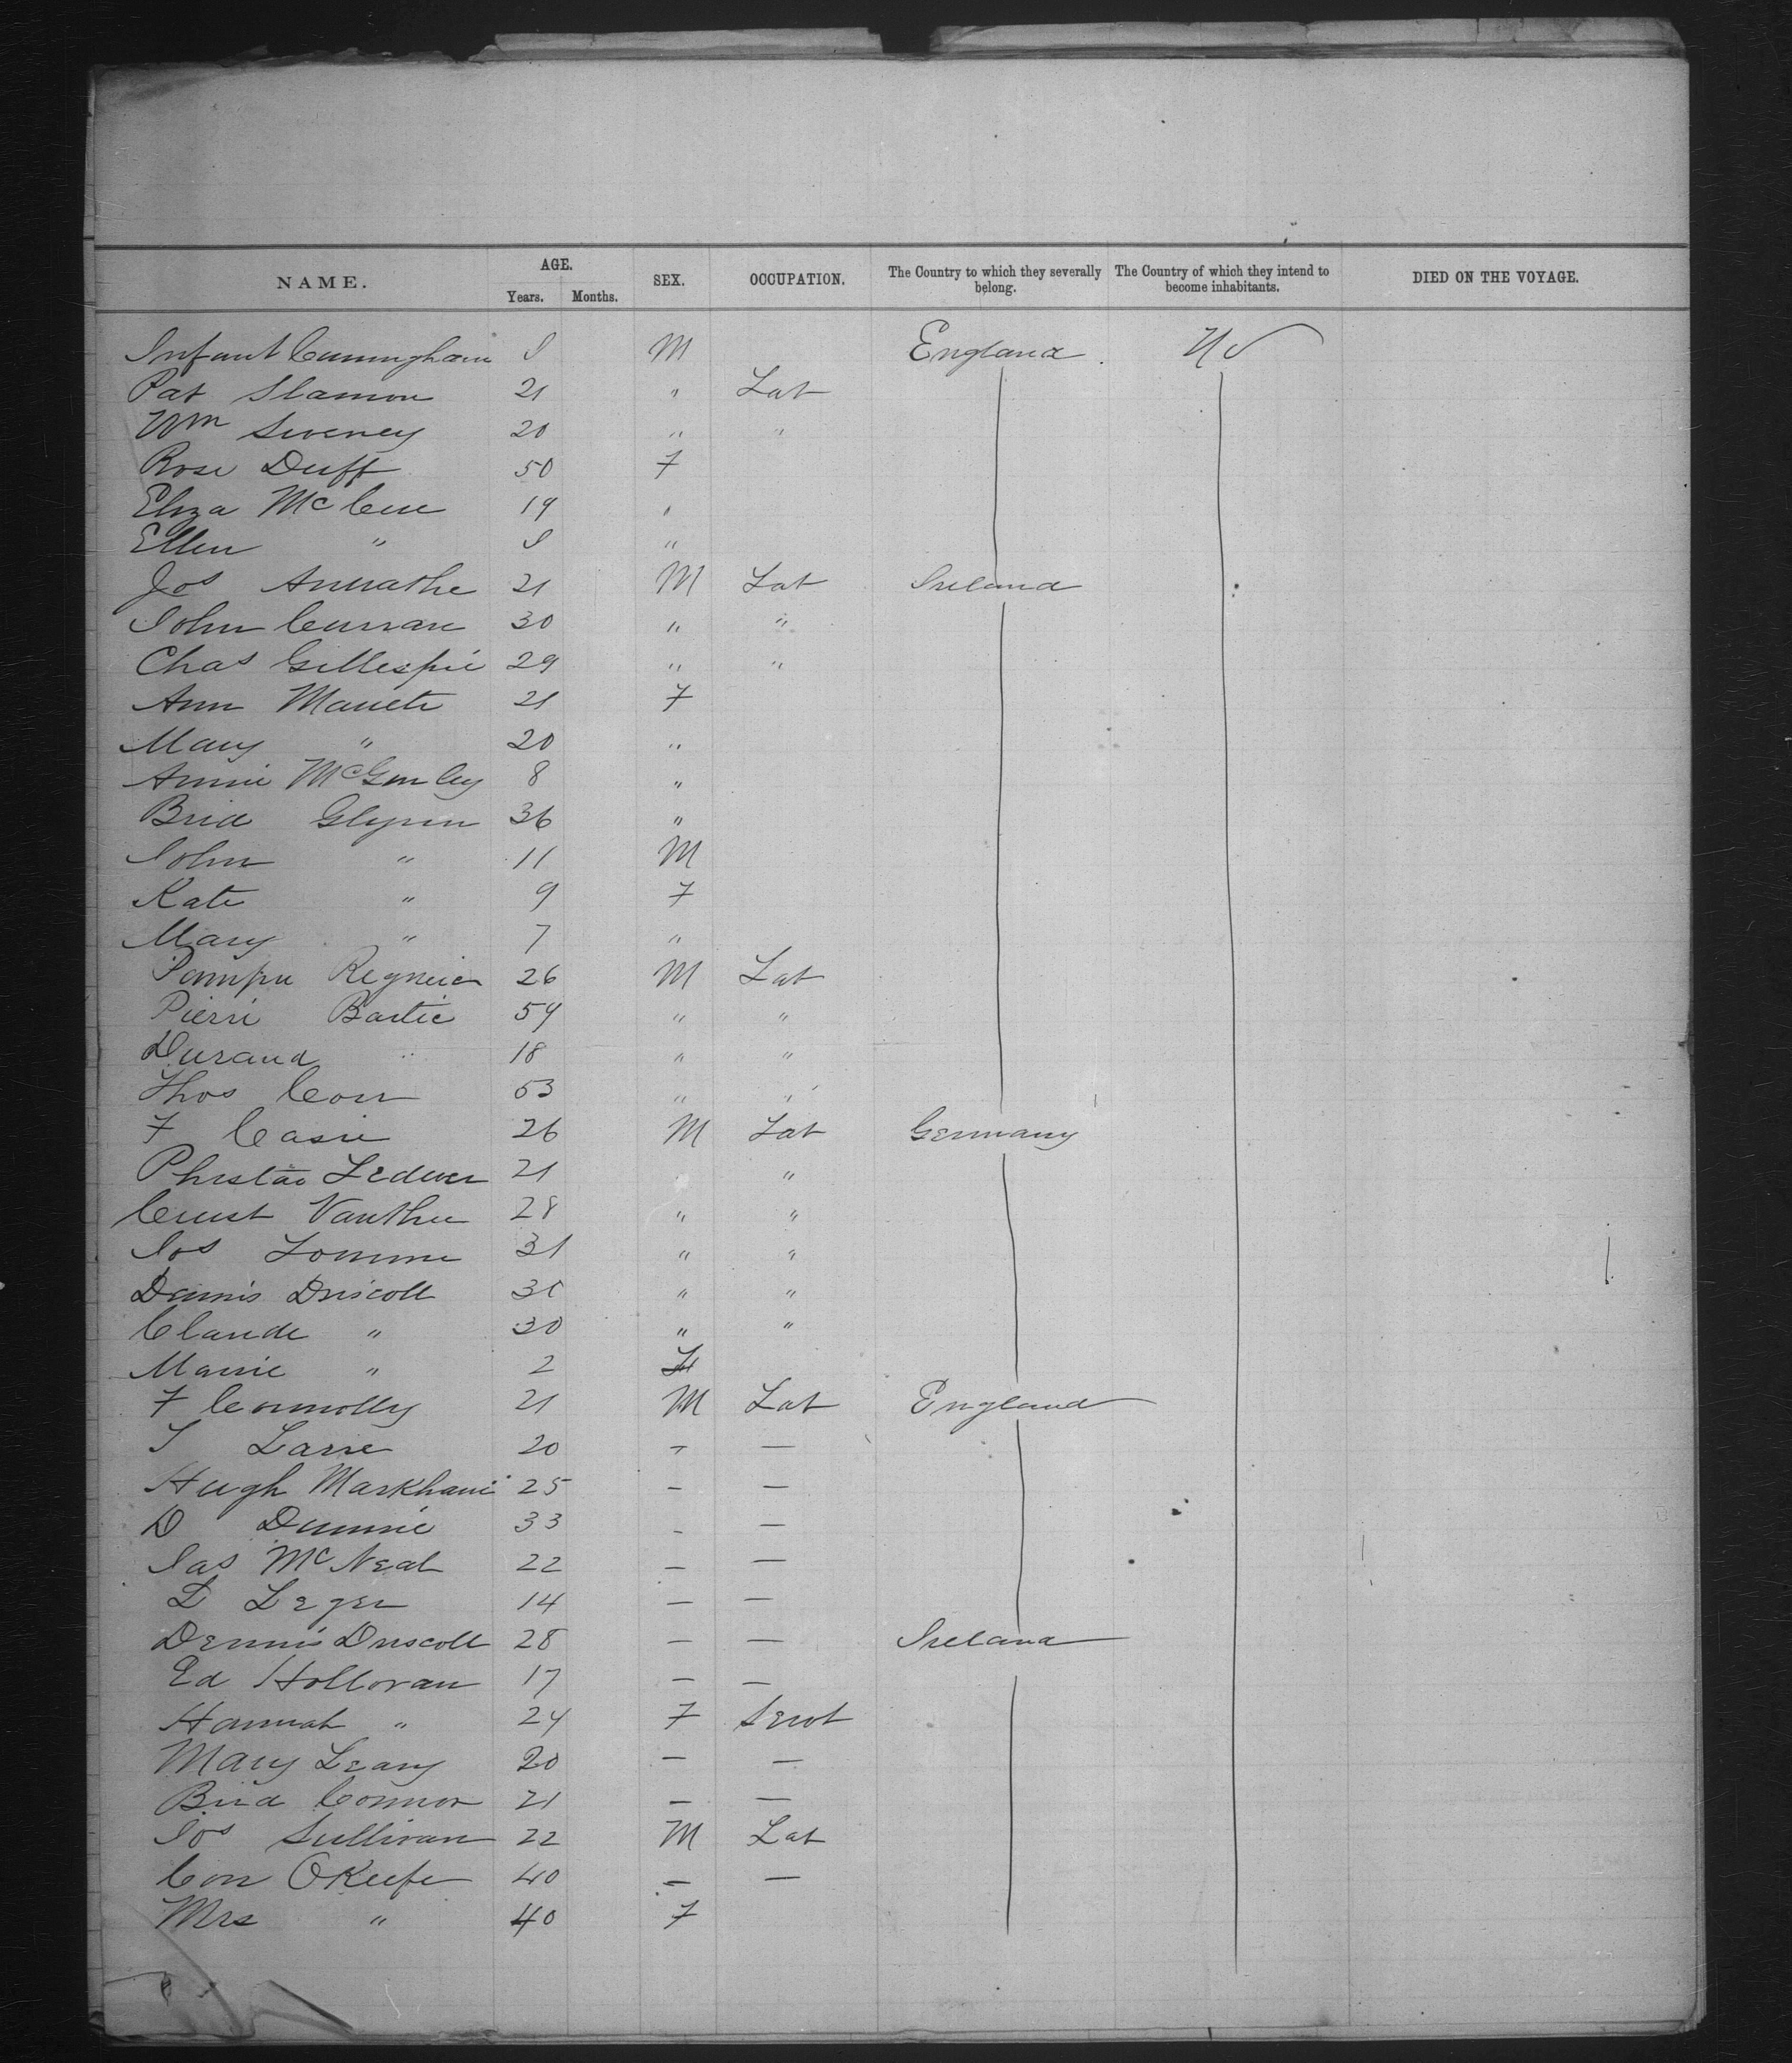 NAME. AGE. SEX. OCCUPATION. The Country to which they severally belong. The Country of which they intend to become inhabitants. DIED ON THE VOYAGE.
Years. Months.
Infant Cunningham M England US
Pat Slamon 21 " Lab
Wm Sweney 20 " "
Rose Duff 50 F
Eliza McCue 19 "
Ellen " "
Jos 21 M Lab Ireland
John Curran 30 " "
Chas Gillespie 29 " "
Ann 21 F
Mary " 20 "
Annie McGinley 8 "
Brid Glynn 36 "
John " 11 M
Kate " 9 F
Mary " 7 "
Regnier 26 M Lab
Pierre Bartie 54 " "
Durand " 18 " "
Thos Corr 53 " "
F Casie 26 M Lab Germany
21 "
Vanthu 28 " "
Jos 31 " "
Dennis Driscoll 30 " "
Claude " 30 " "
Marie " 2 F
F Connolly 21 M Lab England
Larre 20 - -
Hugh Markham 25 - -
D Dunnie 33 - -
Jas McNeal 22 - -
L Leger 14 - -
Dennis Driscoll 28 - - Ireland
Ed Holloran 17 - -
Hannah " 24 F Servt
Mary Leary 20 - -
Brid Connor 21 - -
Jos Sullivan 22 M Lab
Con OKeefe 40 - -
Mrs " 40 F